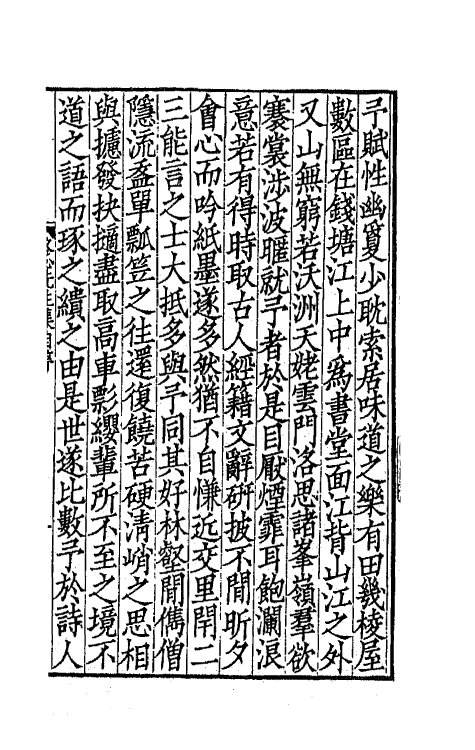 予賦性幽敻少耽索居味道之樂有田幾棱屋
數區在錢塘江上中爲書堂面江背山江之外
又山無窮若沃洲天姥雲門洛思諸峯嶺羣欲
褰裳涉波暱就予者於是目厭煙霏耳飽瀾浪
意若有得時取古人經籍文辭硏披不間昕夕
會心而吟紙墨遂多然猶不自慊近交里閈二
三能言之士大抵多與予同其好林壑間儁僧
隱流盋單瓢笠之往還復饒苦硬清峭之思相
與攄發抉擿盡取高車影纓輩所不至之境不
道之語而琢之繢之由是世遂比數予於詩人
集自序